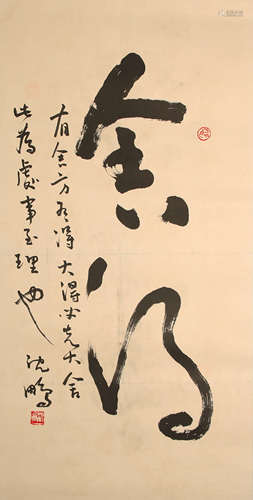 舍得
有舍方有得大得必先大舍
此為處事至理也
沈鵬